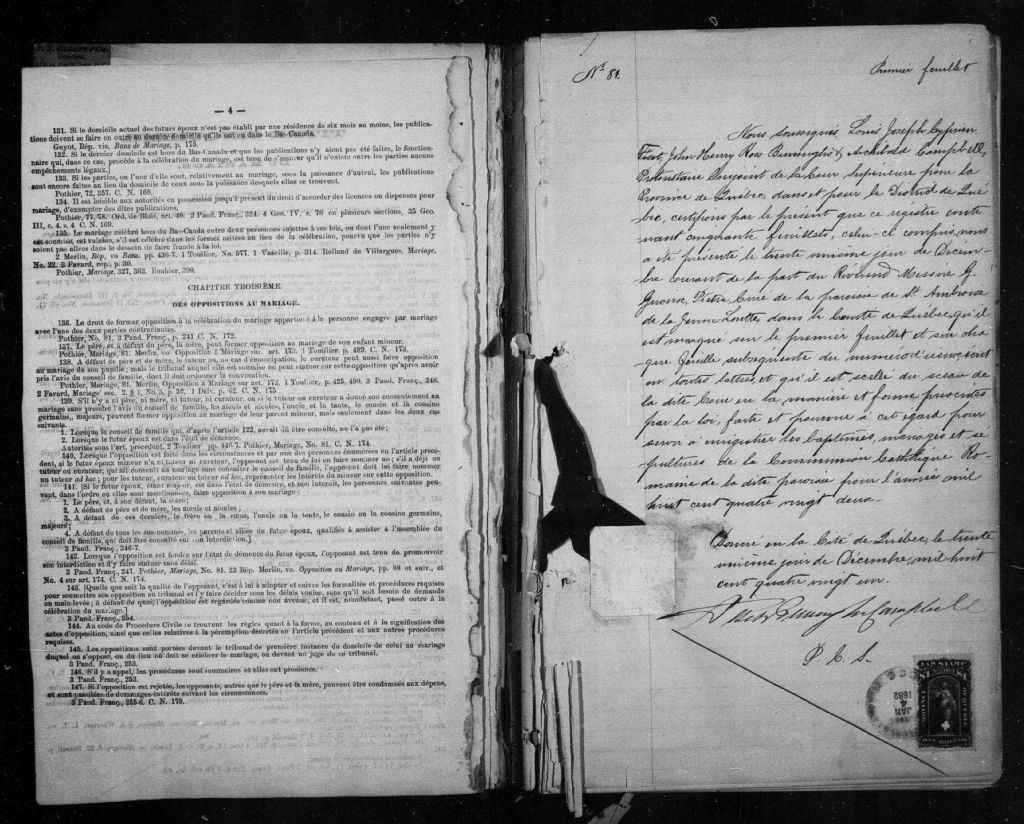 — 4 —
131. Si le domicile actuel des futurs époux n'est pas établi par une résidence de six mois au moins, les publica-
tions doivent se faire en outre au dernier domicile qu'ils ont eu dans le Bas-Canada.
Guyot, Rép. vis. Bans de Mariage, p. 175.
132. Si le dernier domicile est hors du Bas-Canada et que les publications n'y aient pas été faites, le fonction-
naire qui, dans ce cas, procède à la célébration du mariage, est tenu de s'assurer qu'il n'existe entre les parties aucuns
empêchements légaux.]
133. Si les parties, ou l'une d'elle sont, relativement au mariage, sous la puissance d'autrui, les publications
sont encore faites au lieu du domicile de ceux sous la puissance desquels elles se trouvent.
Pothier, 72, 357. C. N. 168.
134. Il est loisible aux autorités en possession jusqu'à présent du droit d'accorder des licences ou dispenses pour
mariage, d'exempter des dites publications.
Pothier, 77, 78. Ord. de Blois, art. 40. 2 Pand. Franç., 324. 4 Geo. IV, c. 76 en plusieurs sections, 35 Geo.
III, c. 4. s. 4 C. N. 169.
135. Le mariage célébré hors du Bas-Canada entre deux personnes sujettes à ses lois, ou dont l'une seulement y
est soumise, est valable, s'il est célébré dans les formes usitées au lieu de la célébration, pourvu que les parties n'y
soient pas allées dans le dessein de faire fraude à la loi.
2 Merlin, Rép, vo Bans. pp. 436-7. 1 Toullier, No. 577. 1 Vazeille, p. 314. Rolland de Villargues, Mariage,
No. 22. 3 Favard, rép., p. 30.
Pothier, Mariage, 327, 363. Bouhier, 290.
CHAPITRE TROISIÈME.
DES OPPOSITIONS AU MARIAGE.
136. Le droit de former opposition à la célébration du mariage appartient à la personne engagée par mariage
avec l'une des deux parties contractantes.
Pothier, No. 81, 3 Pand. Franç., p. 241 C. N. 172.
137. Le père, et à défaut du père, la mère, peut former opposition au mariage de son enfant mineur.
Pothier, Mariage, 81. Merlin, vo. Opposition à Mariage sur. art. 173. 1 Toullier p. 489. C. N. 173.
138. A défaut de père et de mère, le tuteur, ou, au cas d'émancipation, le curateur peut aussi faire opposition
au mariage de son pupille ; mais le tribunal auquel elle est soumise ne peut statuer sur cette opposition qu'après avoir
pris l'avis du conseil de famille, dont il doit ordonner la convocation.
Pothier, Mariage, 81. Merlin, Opposition à Mariage sur art. 172. 1 Toullier, p. 425, 490. 3 Pand. Franç., 248.
2 Favard, Mariage sec. 2, § 1, No. 3, p. 57. 1 Delv, p. 62. C. N. 175
139. S'il n'y a ni père, ni mère, ni tuteur, ni curateur, ou si le tuteur ou curateur a donné son consentement au
mariage sans prendre l'avis du conseil de famille, les aïeuls et aïeules, l'oncle et la tante, le cousin et la cousine
germains, majeurs, peuvent former opposition au mariage de leur parent mineur, mais seulement dans les deux cas
suivants.
1. Lorsque le conseil de famille qui, d'après l'article 122, aurait dû être consulté, ne l'a pas été ;
2. Lorsque le futur époux est dans l'état de démence.
Autorités sous l'art. précédent. 2 Toullier pp. 446-7. Pothier, Mariage, No. 81. C. N. 174.
140. Lorsque l'opposition est faite dans les circonstances et par une des personnes énumérées en l'article précé-
dent, si le futur époux mineur n'a ni tuteur ni curateur, l'opposant est tenu de lui en faire nommer un ; s'il a déjà un
tuteur ou curateur, qui ait consenti au mariage sans consulter le conseil de famille, l'opposant doit lui faire nommer
un tuteur ad hoc ; pour les tuteur, curateur ou tuteur ad hoc, représenter les intérêts du mineur sur cette opposition.
141. Si le futur époux, étant majeur, est dans l'état de démence, et non interdit, les personnes suivantes peu-
vent, dans l'ordre où elles sont mentionnées, faire opposition à son mariage :
1. Le père, et, à son défaut, la mère ;
2. A défaut de père et de mère, les aïeuls et aïeules ;
3. A défaut de ces derniers, le frère ou la sœur, l'oncle ou la tante, le cousin ou la cousine germains,
majeurs ;
4. A défaut de tous les sus-nommés, les parents et alliés de futur époux, qualifiés à assister à l'assemblée du
conseil de famille, qui doit être consulté sur son interdiction.]
3 Pand. Franç., 246-7.
142. Lorsque l'opposition est fondée sur l'état de démence du futur époux, l'opposant est tenu de promouvoir
son interdiction et d'y faire statuer sans délai.
3 Pand. Franç., 247. Pothier, Mariage, No. 81. 22 Rép. Merlin, vo. Opposition au Mariage, pp. 88 et suiv., et
No. 4 sur art. 174. C. N. 174.
143. [Quelle que soit la qualité de l'opposant, c'est à lui à adopter et suivre les formalités et procédures requises
pour soumettre son opposition au tribunal et l'y faire décider sous les délais voulus, sans qu'il soit besoin de demande
en main-levée ; à défaut de quoi, l'opposition est regardée comme non avenue, et il est, nonobstant, passé outre à la
célébration du mariage.]
3 Pand. Franç., 254.
144. Au code de Procédure Civile se trouvent les règles quant à la forme, au contenu et à la signification des
actes d'opposition, ainsi que celles relatives à la péremption décrétée en l'article précédent et aux autres procédures
requises.
145. Les oppositions sont portées devant le tribunal de première instance du domicile de celui au mariage
duquel on s'oppose, ou du lieu où doit se célébrer le mariage, ou devant un juge de ce tribunal.
3 Pand. Franç., 253.
146. S'il y a appel, les procédures sont sommaires et elles ont préséance.
3 Pand. Franç., 253.
147. Si l'opposition est rejetée, les opposants, autres que le père et la mère, peuvent être condamnés aux dépens,
et sont passibles de dommages-intérêts suivant les circonstances.
3 Pand. Franç., 255-6. C. N. 179.
No 81.
Premier feuillet
Nous soussignés Louis Joseph Cyprien
Fiset, John Henry Ross Burroughs & Archibald Campbell,
Protonotaire Conjoint de la Cour Supérieure pour la
Province de Québec, dans et pour le District de Qué
bec, certifions par le présent que ce régistre conte
nant cinquante feuillets, celui-ci compris, nous
a été présenté le trente unième jour de Decem
bre courant de la part du Révérend Messire G.
Prêtre, Curé de la paroisse de St Ambroise
de la Jeune Lorette, dans le Comté de Québec, qu'il
est marqué sur le premier feuillet et sur cha
que feuille subséquente du numéro d'iceux écrit
en toutes lettres, et qu'il est scellé du sceau de
la dite Cour en la manière et forme prescrites
par la loi, faite et pourvue à cet égard pour
servir à enregistrer les baptêmes, mariages et sé
pultures de la Communion Catholique Ro-
maine de la dite paroisse pour l'année mil
huit cent quatre vingt deux.
Donné en la Cité de Québec, le trente
unième jour de Décembre, mil huit
cent quatre vingt un.
Campbell
P. C. S.
JAN
4
1882
LAW STAMP
ONE DOLLAR